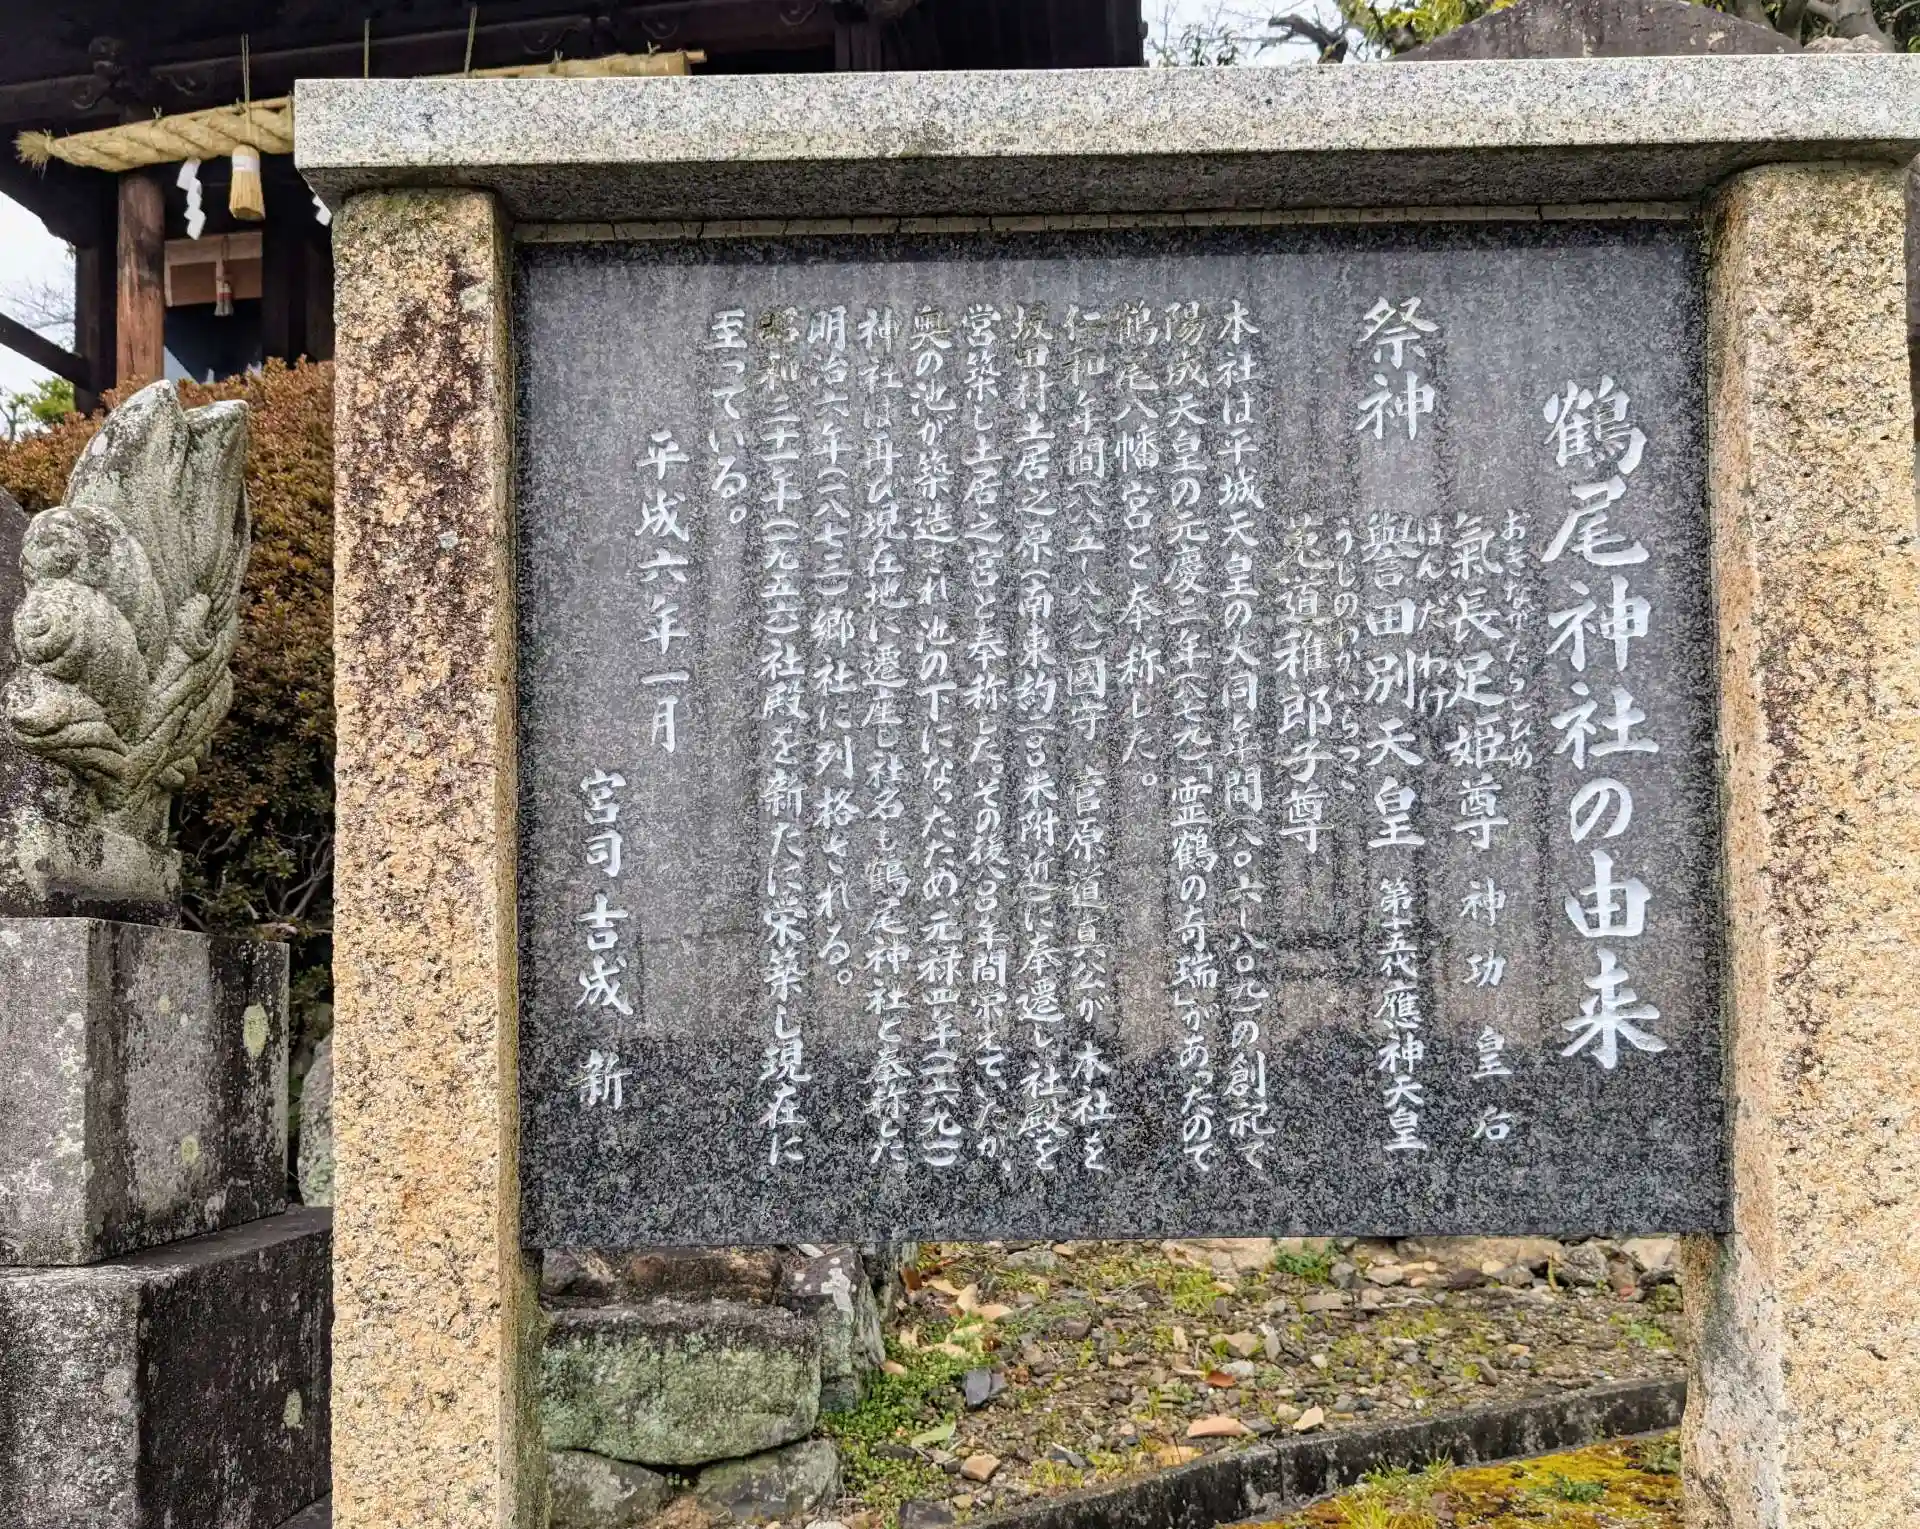 鶴尾神社の由来
祭神
おきながたらしひめ
氣長足姫尊 神功 皇后
ほんだ わけ
譽田別天皇 第十五代應神天皇
うじのわかいらつこ
菟道稚郎子尊
本社は平城天皇の大同年間(八〇六ー八〇九)の創祀で
陽成天皇の元慶三年(八七九)「霊鶴の奇瑞」があったので
鶴尾八幡宮と奉称した。
仁和年間(八八五ー八八八)國守 菅原道真公が 本社を
坂田村土居之原(南東約二〇〇米附近)に奉遷し社殿を
営築し土居之宮と奉称した。その後八〇〇年間栄えていたが、
奥の池が築造され池の下になったため、元禄四年(一六九一)
神社は再び現在地に遷座し社名も鶴尾神社と奉称した。
明治六年(一八七三)郷社に列格される。
昭和三十一年(一九五六)社殿を新たに栄築し現在に
至っている。
平成六年一月
宮司 吉成 新